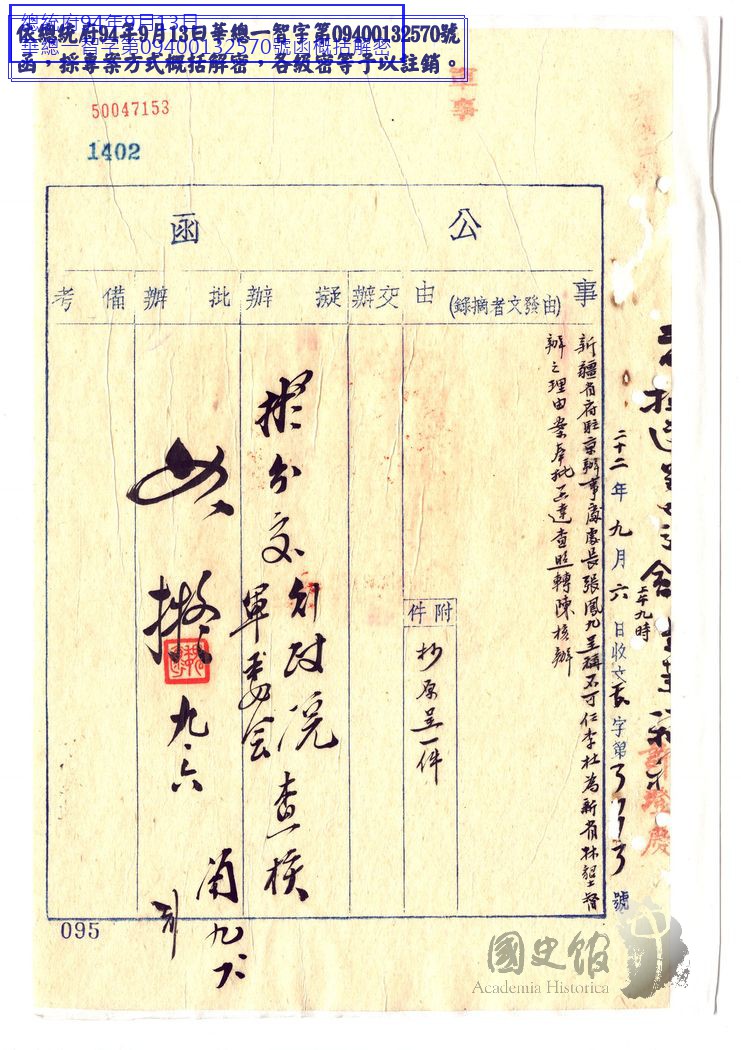 總統府94年9月13日
華總一智字第09400132570號函概括解密
依總統府94年9月13日華總一智字第09400132570號
函，採專案方式概括解密，各級密等予以註銷。
50047153
1402
公函
事由(由發文者摘錄)
交辦
擬辦
批辦
備考
二十二年九月六日收文
上午九時
字第
號
新疆省府駐京辦事處處長張鳳九呈稱不可任李杜為新省林墾督
辦之理由案奉批函達查照轉陳核辦
附件
抄原呈一件
擬分交行政院
軍委會
查核
如擬
九、六
095
國史館
Academia Historica